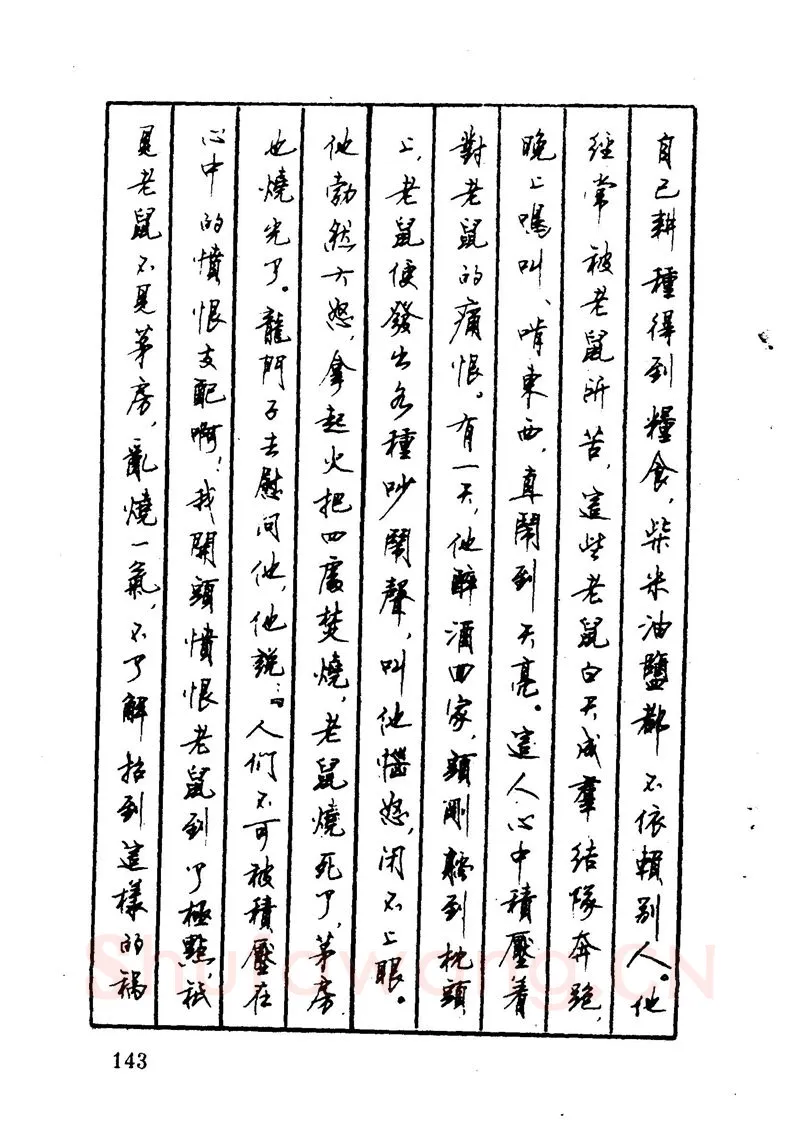 自己耕種得到糧食，柴米油鹽都不依賴別人。他
經常被老鼠所苦，這些老鼠白天成羣結隊奔跑，
晚上鳴叫、啃東西，直鬧到天亮。這人心中積壓着
對老鼠的痛恨。有一天，他醉酒回家，頭剛躺到枕頭
上，老鼠便發出各種吵鬧聲，叫他惱怒，闭不上眼。
他勃然大怒，拿起火把四處焚燒，老鼠燒死了，茅房
也燒光了。龍門子去慰问他，他說：“人们不可被積壓在
心中的憤恨支配啊！我開頭憤恨老鼠到了極點，祇
見老鼠不見茅房，亂燒一氣，不了解招到這樣的禍
143
Shufawang.CN